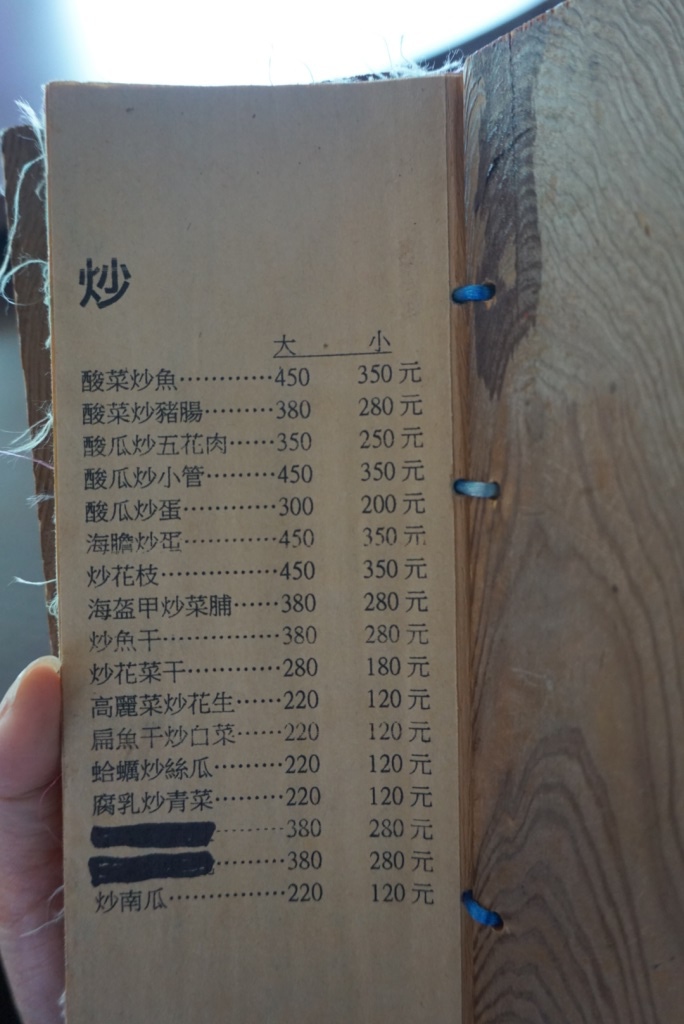 炒
大 . 小
酸菜炒魚············450 350元
酸菜炒豬腸·········380 280元
酸瓜炒五花肉······350 250元
酸瓜炒小管·········450 350元
酸瓜炒蛋············300 200元
海膽炒蛋············450 350元
炒花枝···············450 350元
海盔甲炒菜脯······380 280元
炒魚干···············380 280元
炒花菜干············280 180元
高麗菜炒花生······220 120元
扁魚干炒白菜······220 120元
蛤蠣炒絲瓜·········220 120元
腐乳炒青菜·········220 120元
·········380 280元
·········380 280元
炒南瓜···············220 120元